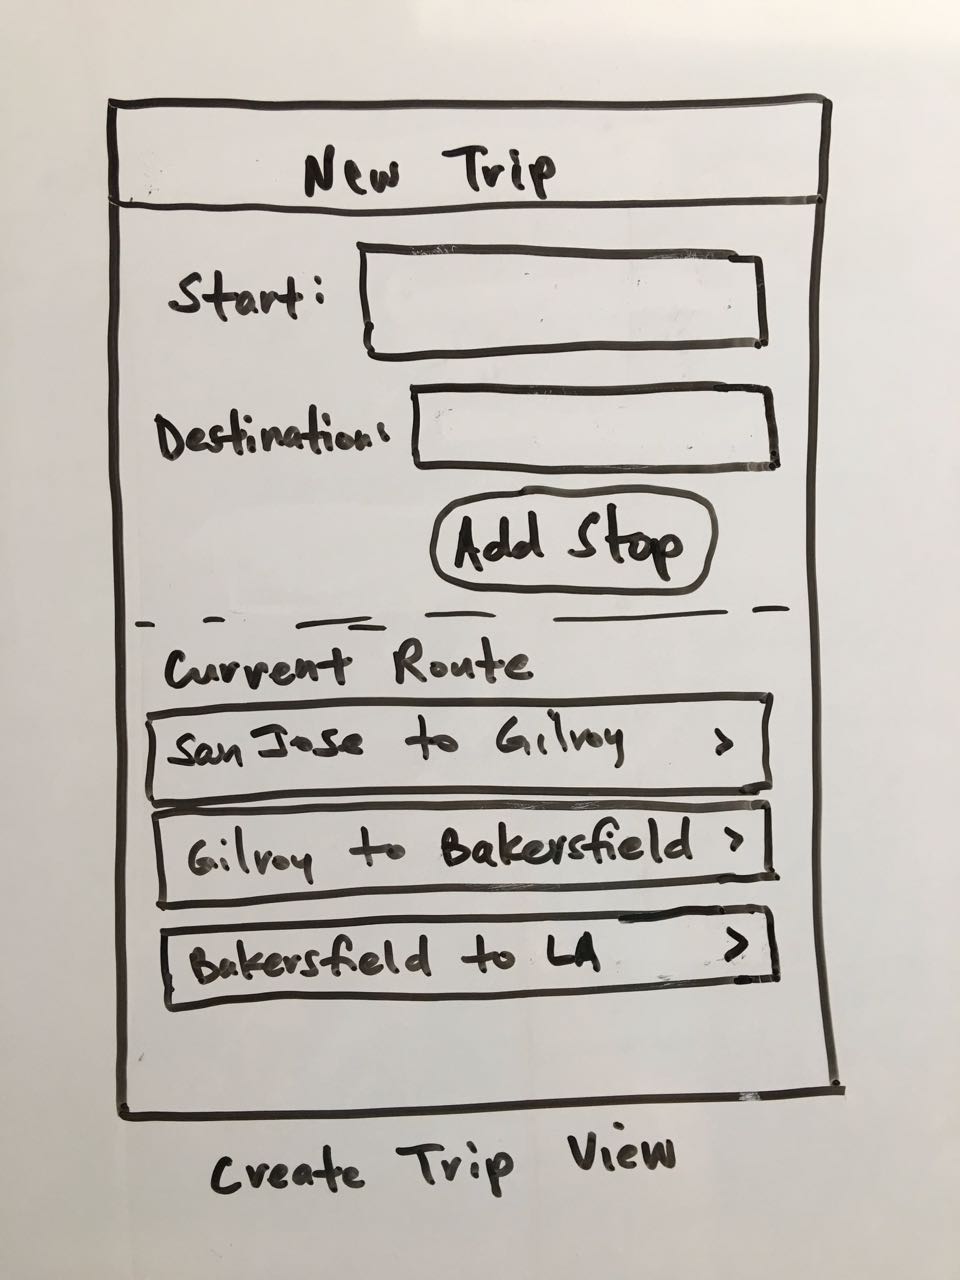 New Trip
Start:
Destination:
Add Stop
Current Route
San Jose to Gilroy >
Gilroy to Bakersfield >
Bakersfield to LA >
Create Trip View